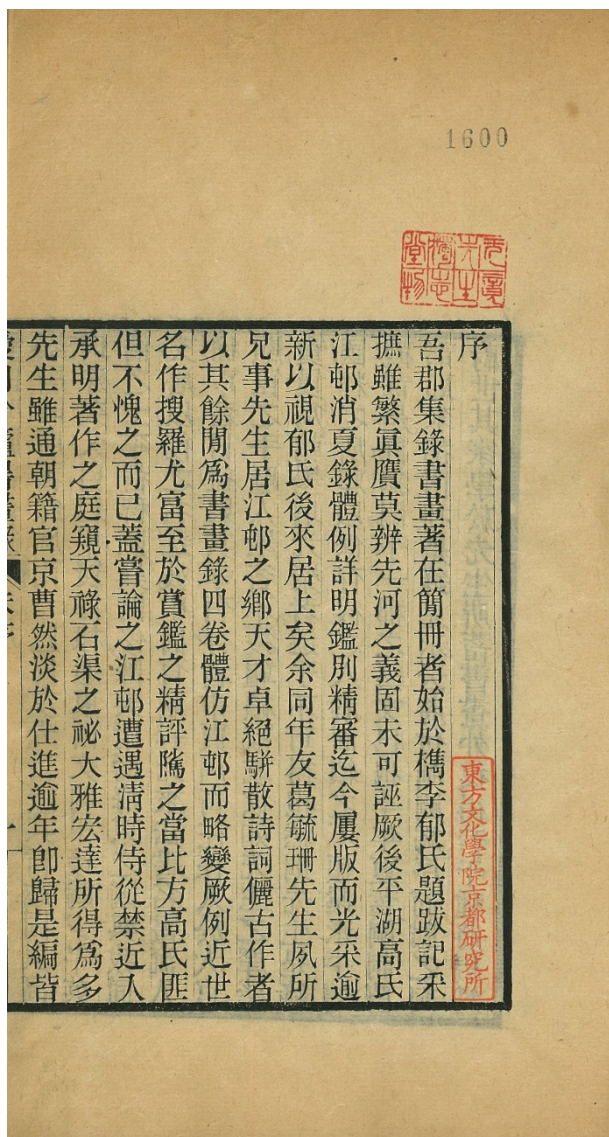 1600
无竟
先生
獨志
堂物
序
東方文化學院京都研究所
吾郡集錄書畫著在簡冊者始於檇李郁氏題跋記采
摭雖繁眞贋莫辨先河之義固未可誣厥後平湖高氏
江邨消夏錄體例詳明鑑別精審迄今屢版而光采逾
新以視郁氏後來居上矣余同年友葛毓珊先生夙所
兄事先生居江邨之鄕天才卓絕駢散詩詞儷古作者
以其餘閒爲書畫錄四卷體仿江邨而略變厥例近世
名作搜羅尤富至於賞鑑之精評隲之當比方高氏匪
但不愧之而已蓋嘗論之江邨遭遇淸時侍從禁近入
承明著作之庭窺天祿石渠之祕大雅宏達所得爲多
先生雖通朝籍官京曹然淡於仕進逾年卽歸是編皆